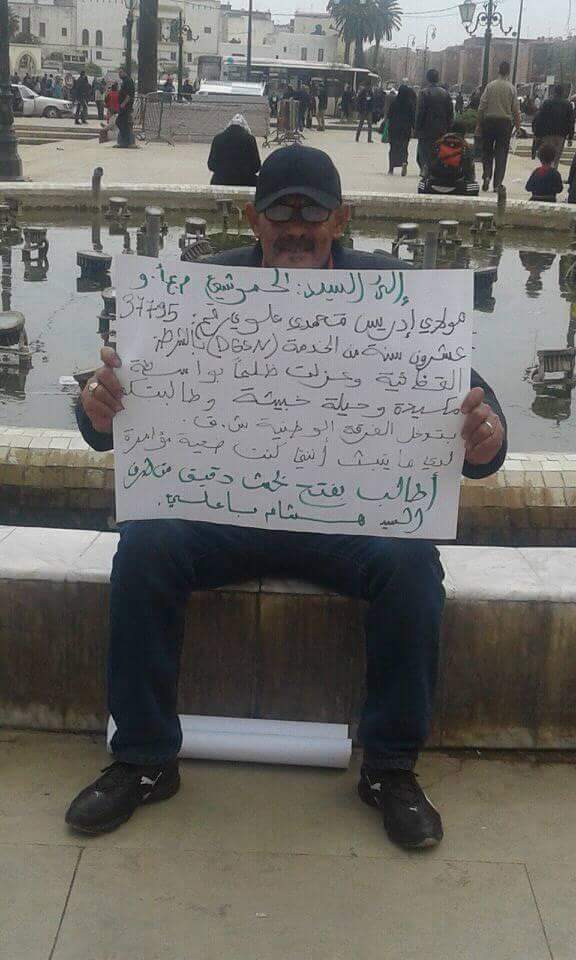 إلى السيد: الحموشي م.ع.أ.و
مولاي إدريس محمدي علوي رقم: 37795
عشرون سنة من الخدمة (DGSN) بالشرطة
القضائية وعزلت ظلما بواسطة
مكيدة وحيلة خبيثة وطالبتكم
بتدخل الفرقة الوطنية ش.ق.
لدي ما يثبت أنني كنت ضحية مؤامرة
أطالب بفتح بحث دقيق من طرف
السيد هشام باعلي.